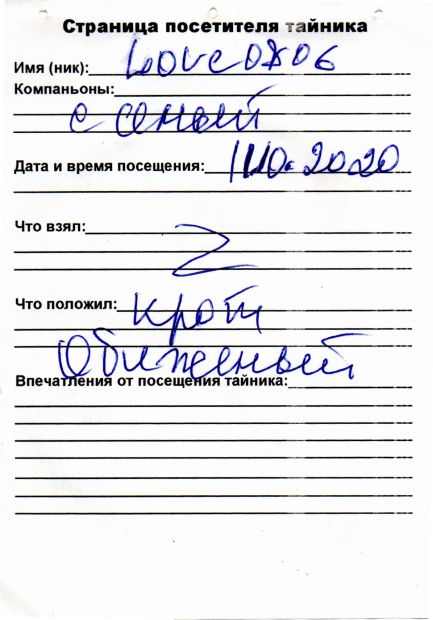 Страница посетителя тайника
Имя (ник): Love0806
Компаньоны:
с семьей
Дата и время посещения: 11.10.2020
Что взял:
Z
Что положил: крот
Обиженый
Впечатления от посещения тайника: